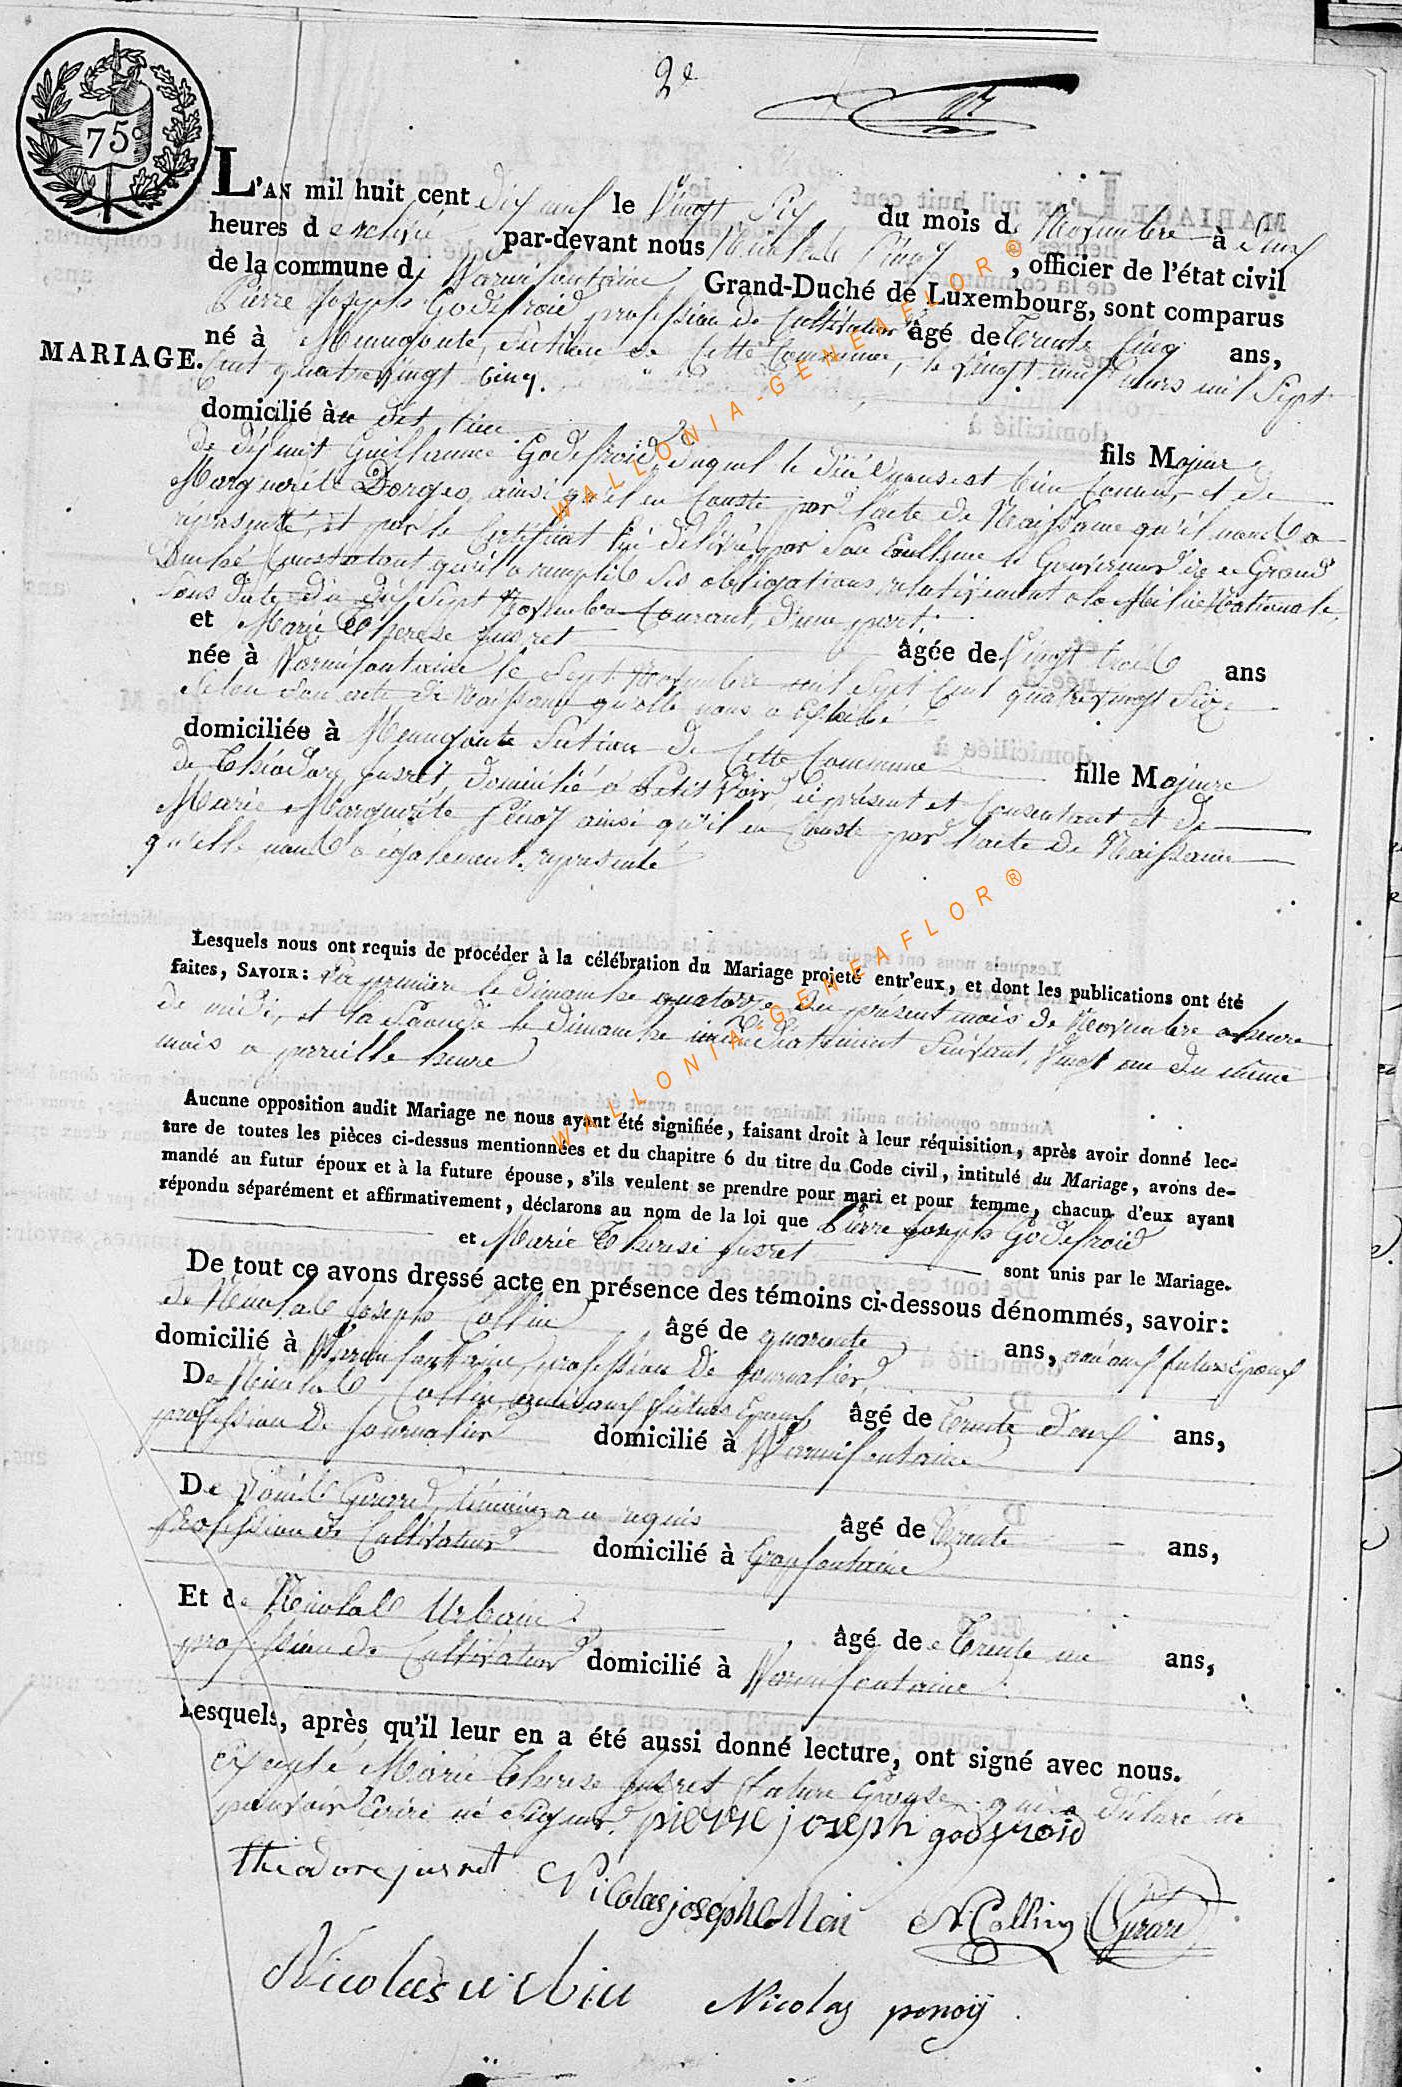 2e
75c
MARIAGE.
L'AN mil huit cent Dix neuf le Vingt Six du mois de Novembre à Deux
heures de relevée par-devant nous Nicolas Pênoÿ, officier de l'état civil
de la commune de Warmifontaine Grand-Duché de Luxembourg, sont comparus
Pierre Joseph Godefroid profession de Cultivateur âgé de Trente Cinq ans,
né à Menugoute, Section de Cette Commune, le Vingt neuf mars mil Sept
Cent quatre Vingt Cinq.
domicilié au dit lieu fils Majeur
de défunt Guillaume Godefroid, duquel le décè nous est bien Connu, et de
Marguerite Dorgeo, ainsi qu'il en Conste par l'acte de Naissance qu'il nous a
représenté, et par le Certificat délivré par Son Excellence le Gouverneur de ce Grand
Duché Constatant qu'il a rempli Ses obligations relativement a la Milice Nationale,
Sous date du dix Sept Novembre Courant, d'une part.
et Marie Therese jusret âgée de Vingt trois ans
née à Warmifontaine le Sept Novembre mil Sept Cent quatre Vingt Six
Selon Son acte de Naissance qu'elle nous a Exhibé
domiciliée à Menugoute Section de Cette Commune fille Majeure
de Théodore jusret domicilié a Petit Voir, ici présent et Consentant et de
Marie Marguerite Pênoy ainsi qu'il en Conste par l'acte de Naissance
qu'elle nous a également représenté
Lesquels nous ont requis de procéder à la célébration du Mariage projeté entr'eux, et dont les publications ont été
faites, SAVOIR: La première le dimanche quatorze du présent mois de Novembre a heure
de midi, et la Seconde le dimanche immédiatement Suivant, Vingt un du même
mois a pareille heure
Aucune opposition audit Mariage ne nous ayant été signifiée, faisant droit à leur réquisition, après avoir donné lec-
ture de toutes les pièces ci-dessus mentionnées et du chapitre 6 du titre du Code civil, intitulé du Mariage, avons de-
mandé au futur époux et à la future épouse, s'ils veulent se prendre pour mari et pour femme, chacun d'eux ayant
répondu séparément et affirmativement, déclarons au nom de la loi que Pierre Joseph Godefroid
et Marie Therese jusret sont unis par le Mariage.
De tout ce avons dressé acte en présence des témoins ci-dessous dénommés, savoir:
de Nicolas Joseph Collin âgé de quarante ans, ami aux futurs Epoux
domicilié à Warmifontaine, profession de Journalier,
De Nicolas Collin, ami aux futurs Epoux, âgé de Trente Deux ans,
profession de Journalier domicilié à Warmifontaine
De Girard, témoin a ce requis âgé de Trente ans,
profession de Cultivateur domicilié à Grapfontaine
Et de Nicolas Urbain âgé de Trente un ans,
profession de Cultivateur domicilié à Warmifontaine
Lesquels, après qu'il leur en a été aussi donné lecture, ont signé avec nous.
Excepté Marie Therese jusret future Epouse, qui a déclaré ne
pouvoir Ecrire ni Signer. pierre joseph godefroid
theodore jusret Nicolas joseph Collin N Collin Girard
Nicolas urbin Nicolas penoÿ
WALLONIA-GENEAFLOR®
WALLONIA-GENEAFLOR®